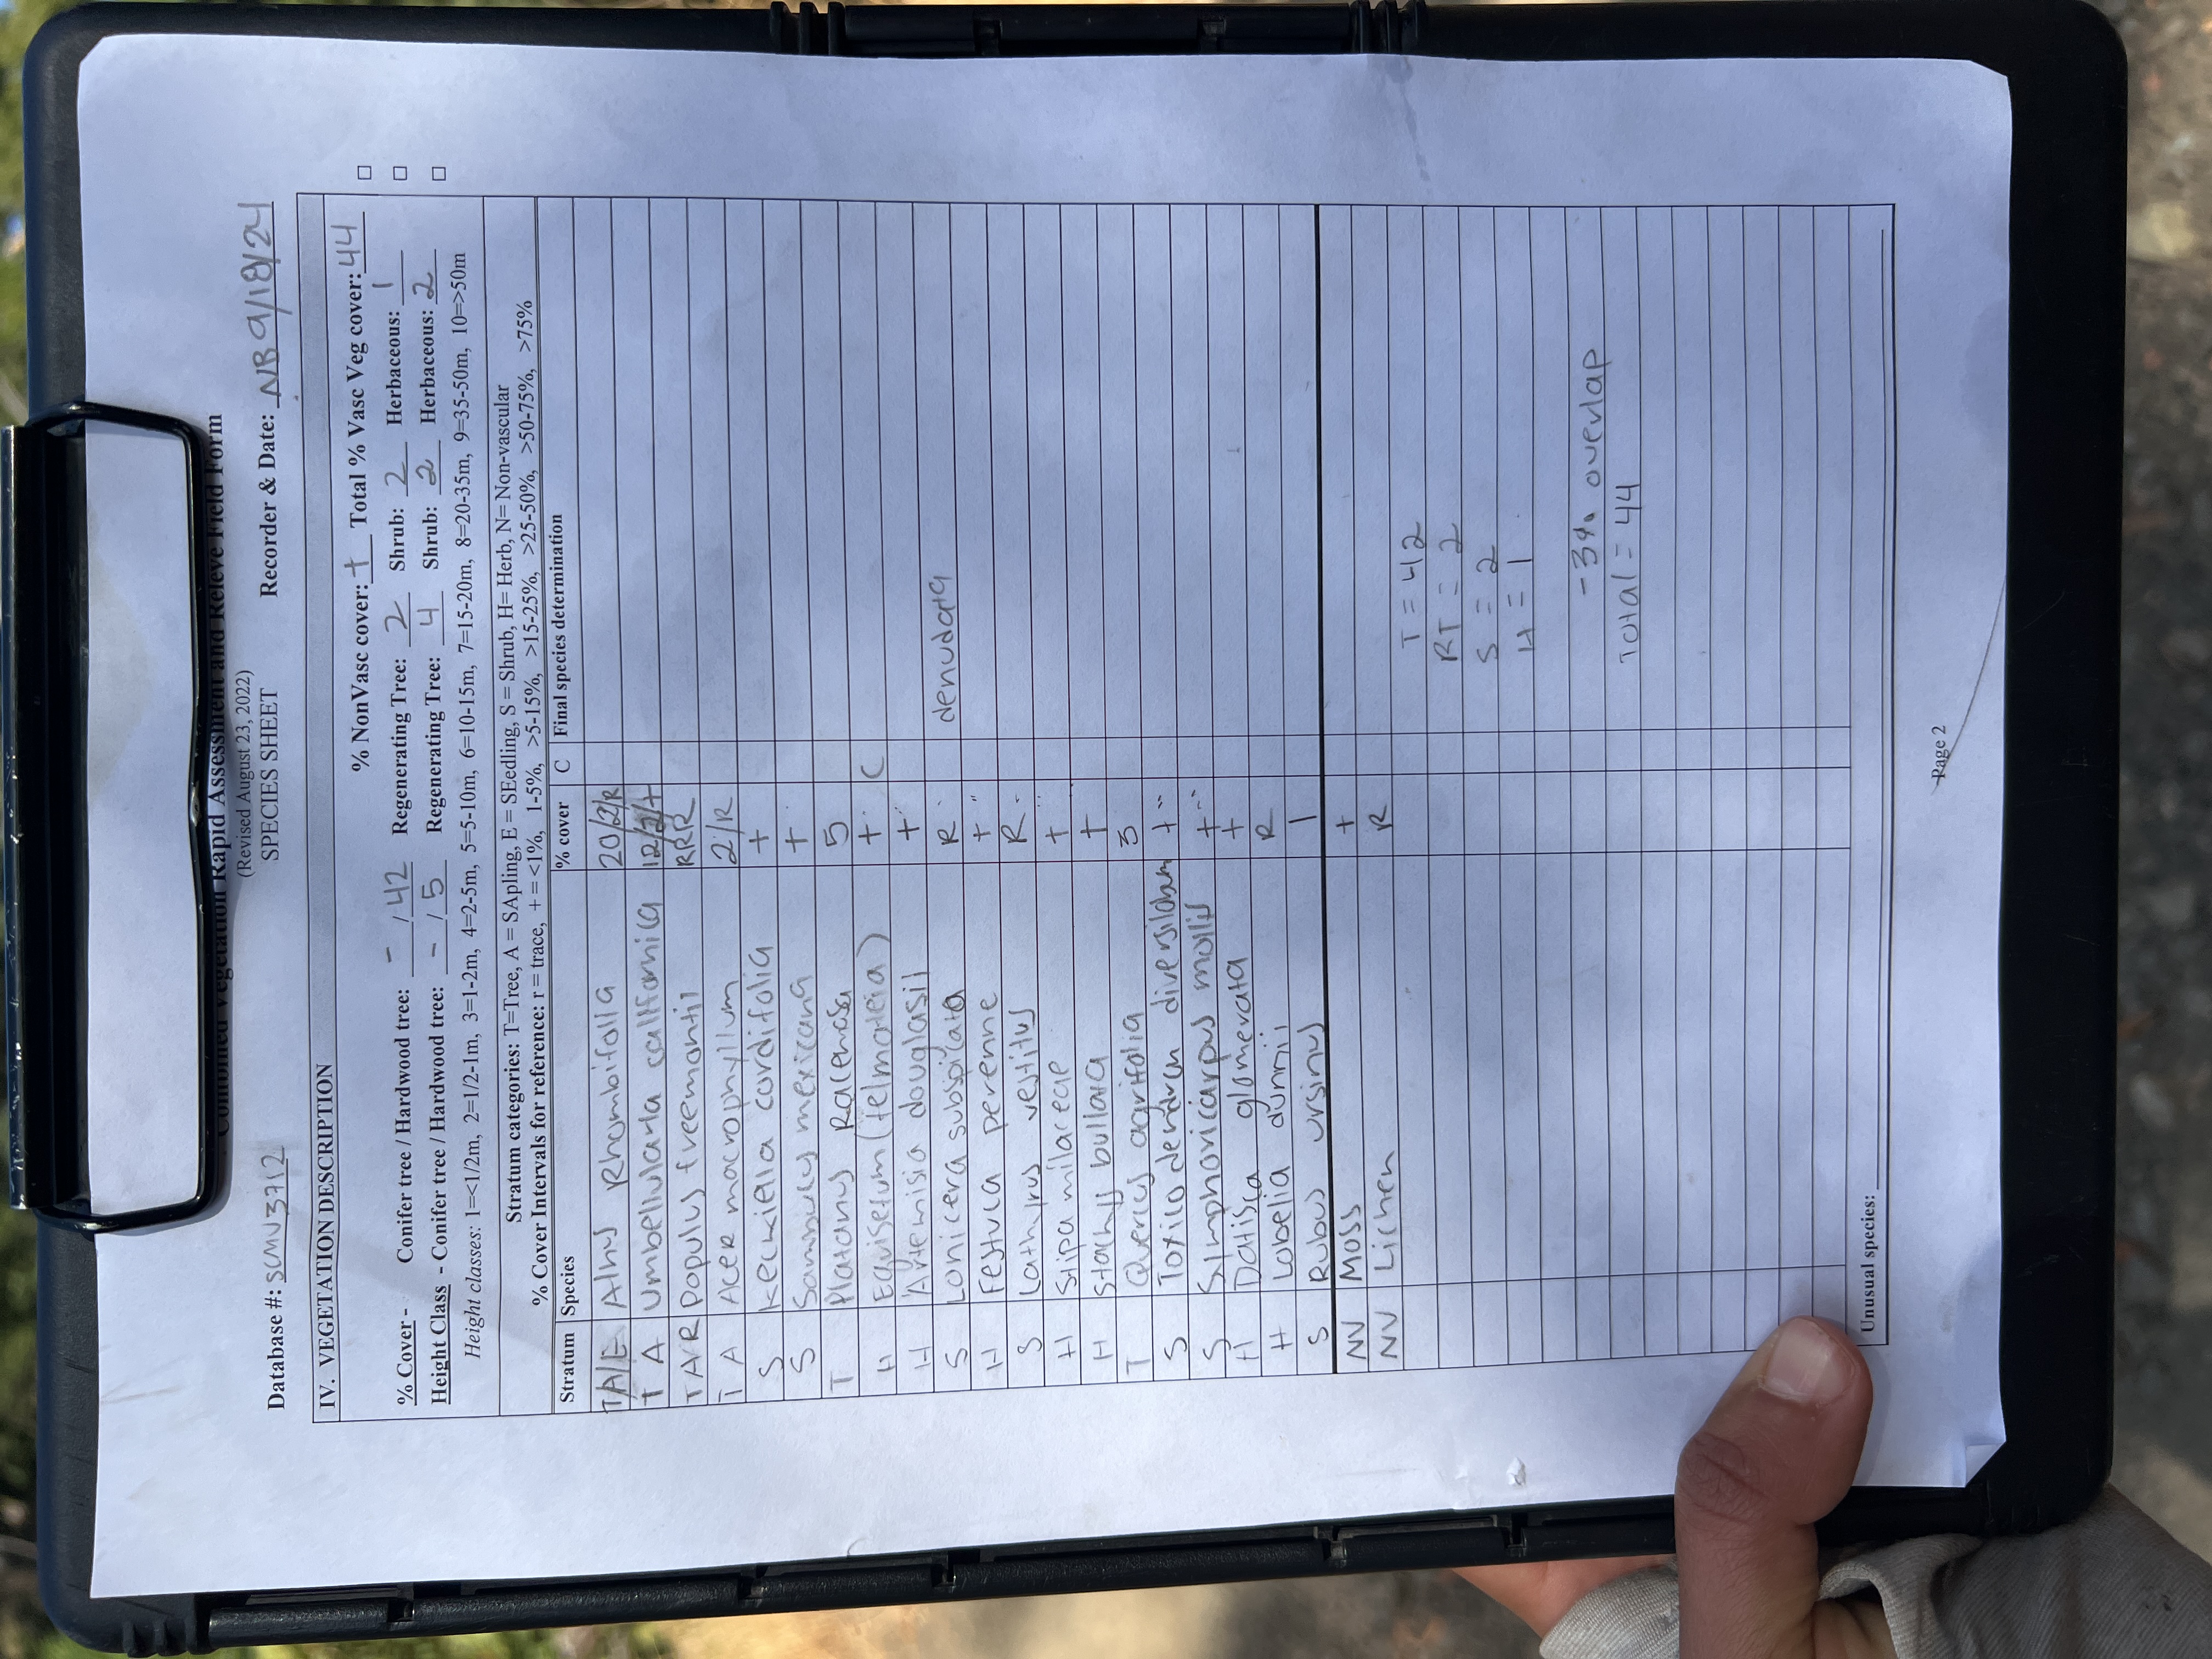 Combined Vegetation Rapid Assessment and Relevé Field Form
(Revised August 23, 2022)
SPECIES SHEET
Database #: SCMV3712 Recorder & Date: NB 9/18/24
IV. VEGETATION DESCRIPTION
% NonVasc cover: + Total % Vasc Veg cover: 44 □
% Cover - Conifer tree / Hardwood tree: - / 42 Regenerating Tree: 2 Shrub: 2 Herbaceous: 1 □
Height Class - Conifer tree / Hardwood tree: - / 5 Regenerating Tree: 4 Shrub: 2 Herbaceous: 2 □
Height classes: 1=<1/2m, 2=1/2-1m, 3=1-2m, 4=2-5m, 5=5-10m, 6=10-15m, 7=15-20m, 8=20-35m, 9=35-50m, 10=>50m
Stratum categories: T=Tree, A = SApling, E = SEedling, S = Shrub, H= Herb, N= Non-vascular
% Cover Intervals for reference: r = trace, + = <1%, 1-5%, >5-15%, >15-25%, >25-50%, >50-75%, >75%
Stratum Species % cover C Final species determination
T/A/E Alnus Rhombifolia 20/2/R
T A Umbellularia californica 12/2/+
T A R Populus freemontii RRR
T A Acer macrophyllum 2/R
S Keckiella cordifolia +
S Sambucus mexicana +
T Platanus Racemosa 5
H Equisetum (telmateia) + C
H Artemisia douglasii +
S Lonicera subspicata R denudata
H Festuca perenne +
S Lathyrus vestitus R
H Stipa milaceae +
H Stachys bullata +
T Quercus agrifolia 3
S Toxicodendron diversilobum +
S Symphoricarpus mollis +
H Datisca glomerata +
H Lobelia dunnii R
S Rubus ursinus 1
NV Moss +
NV Lichen R
T = 42
RT = 2
S = 2
H = 1
-3% overlap
Total = 44
Unusual species:
Page 2